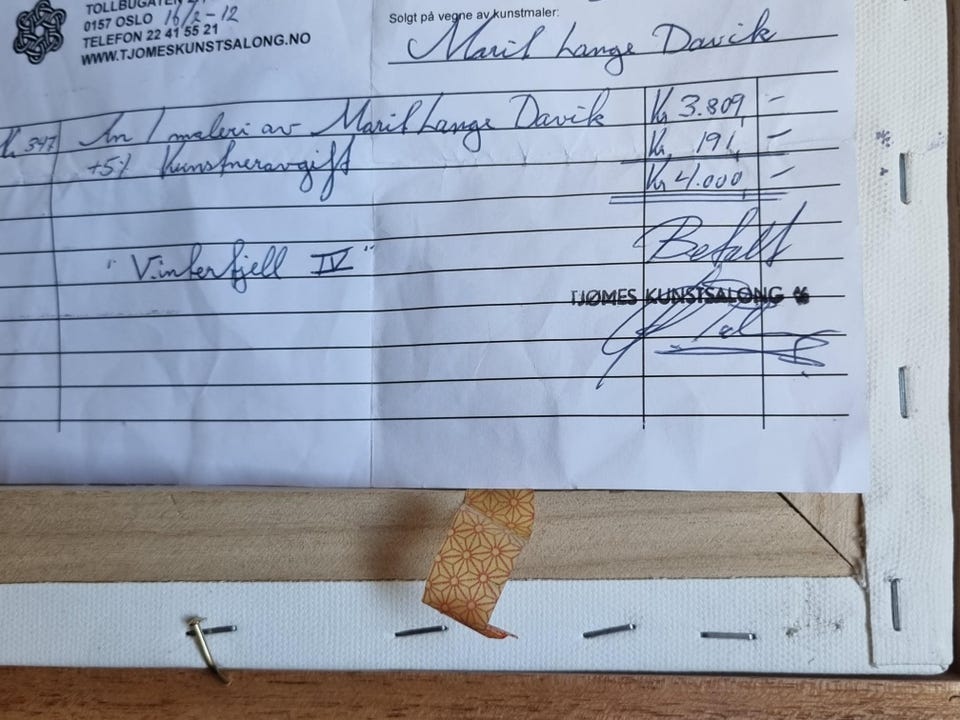 TOLLBUGATEN
0157 OSLO 16/2-12
TELEFON 22 41 55 21
WWW.TJOMESKUNSTSALONG.NO
Solgt på vegne av kunstmaler:
Marit Lange Davik
Kr 347 An 1 maleri av Marit Lange Davik Kr 3.809,-
+5% Kunstneravgift Kr. 191,-
Kr 4.000,-
"Vinterfjell IV"
Betalt
TJØMES KUNSTSALONG